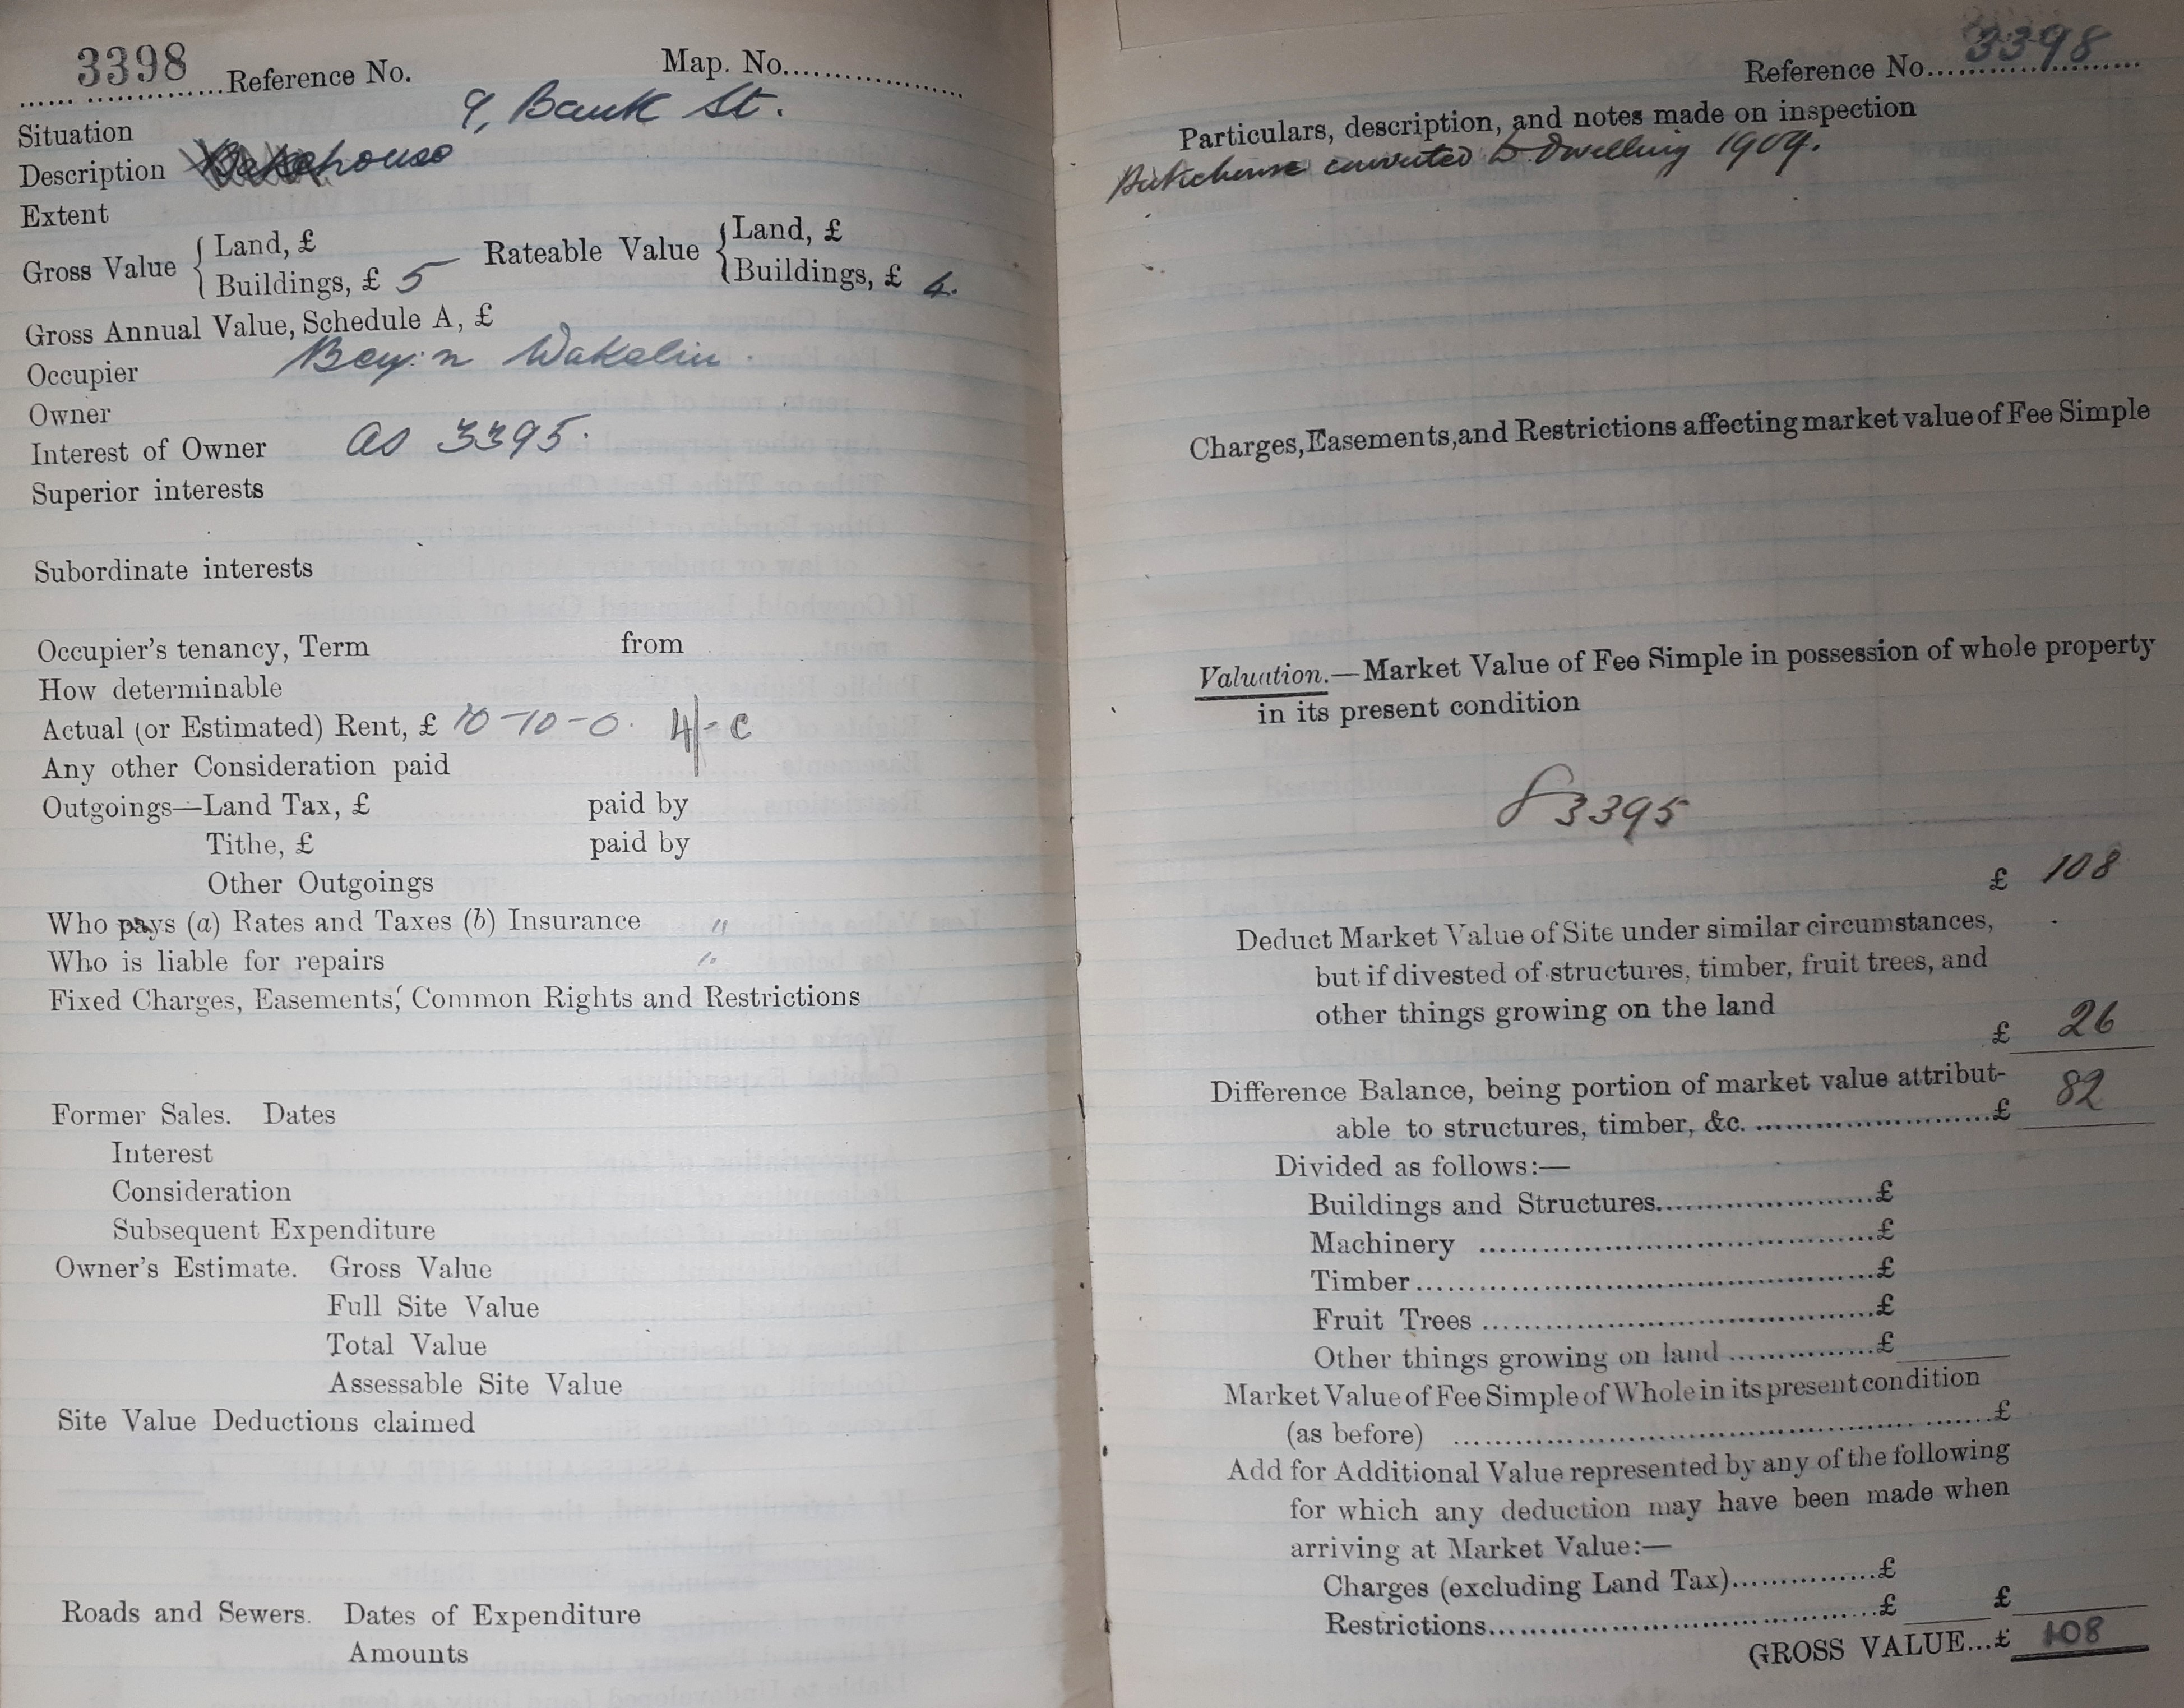 3398 Reference No. Map. No.
Situation 9, Bank St.
Description Bakehouse
Extent
Gross Value { Land, £ Rateable Value { Land, £
Buildings, £ 5 Buildings, £ 4.
Gross Annual Value, Schedule A, £
Occupier Benj:n Wakelin.
Owner
Interest of Owner as 3395.
Superior interests
Subordinate interests
Occupier's tenancy, Term from
How determinable
Actual (or Estimated) Rent, £ 10-10-0. 4/- c
Any other Consideration paid
Outgoings—Land Tax, £ paid by
Tithe, £ paid by
Other Outgoings
Who pays (a) Rates and Taxes (b) Insurance "
Who is liable for repairs "
Fixed Charges, Easements, Common Rights and Restrictions
Former Sales. Dates
Interest
Consideration
Subsequent Expenditure
Owner's Estimate. Gross Value
Full Site Value
Total Value
Assessable Site Value
Site Value Deductions claimed
Roads and Sewers. Dates of Expenditure
Amounts
Reference No. 3398
Particulars, description, and notes made on inspection
Bakehouse converted to Dwelling 1909.
Charges, Easements, and Restrictions affecting market value of Fee Simple
Valuation.—Market Value of Fee Simple in possession of whole property
in its present condition
3395
£ 108
Deduct Market Value of Site under similar circumstances,
but if divested of structures, timber, fruit trees, and
other things growing on the land
£ 26
Difference Balance, being portion of market value attribut-
able to structures, timber, &c. £ 82
Divided as follows:—
Buildings and Structures £
Machinery £
Timber £
Fruit Trees £
Other things growing on land £
Market Value of Fee Simple of Whole in its present condition
(as before) £
Add for Additional Value represented by any of the following
for which any deduction may have been made when
arriving at Market Value:—
Charges (excluding Land Tax) £
Restrictions £ £
GROSS VALUE...£ 108